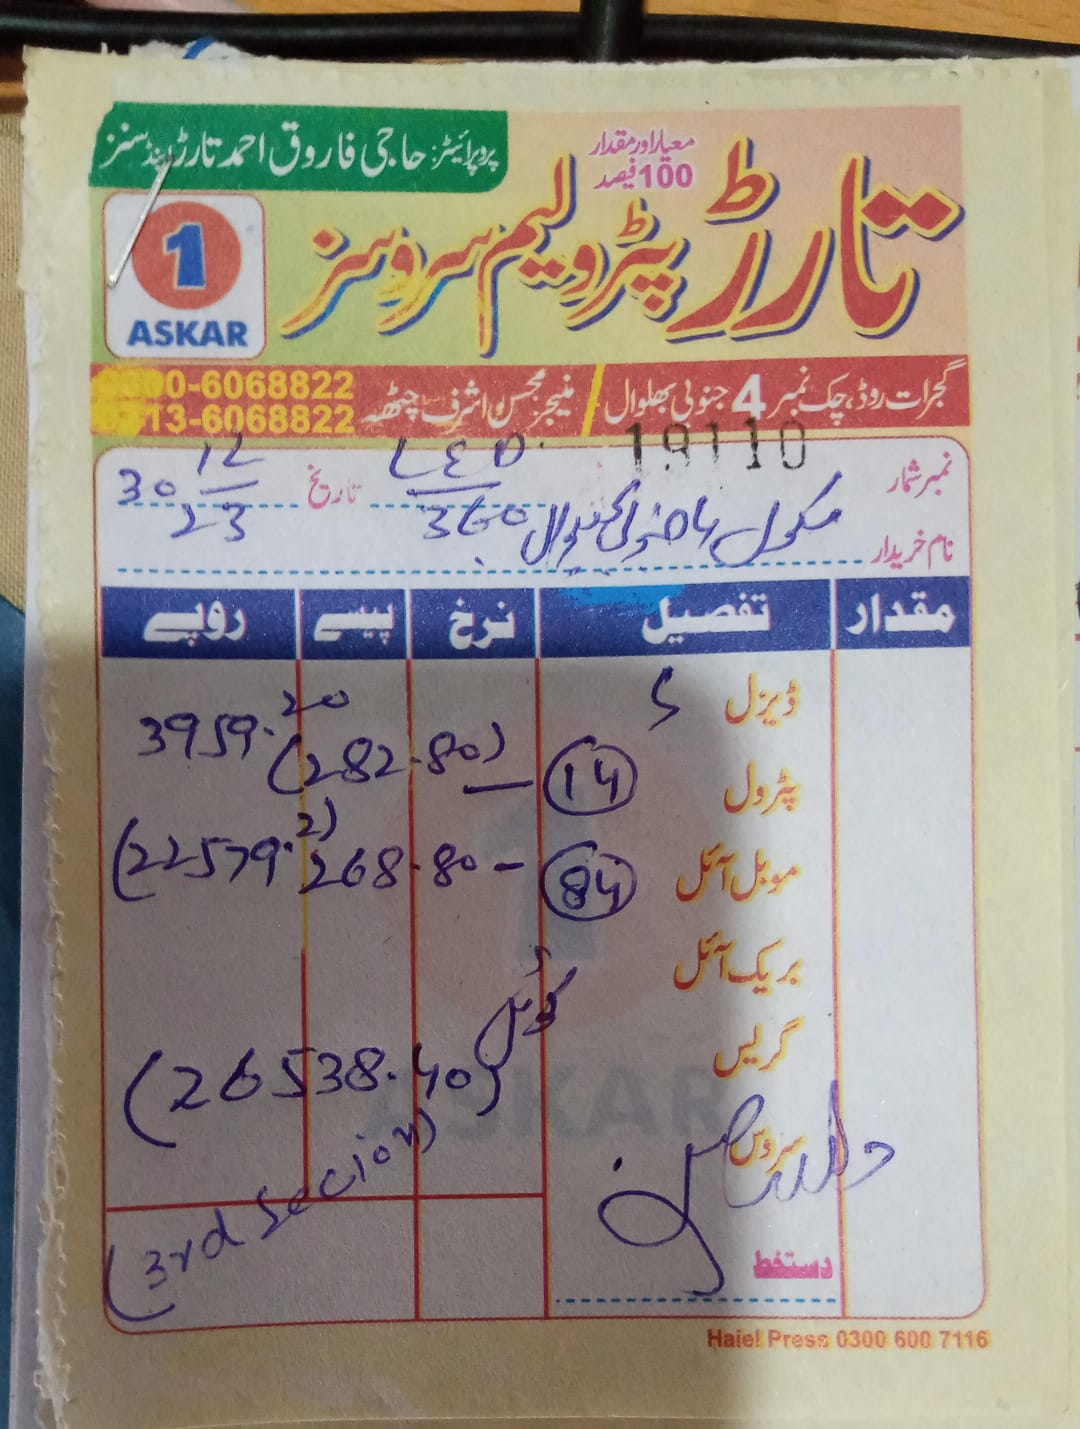 پروپرائیٹر: حاجی فاروق احمد تارڑ اینڈ سنز
معیار اور مقدار
100 فیصد
تارڑ پٹرولیم سروسز
1
ASKAR
گجرات روڈ، چک نمبر 4 جنوبی بھلوال / منیجر محسن اشرف چٹھہ
0-6068822
13-6068822
نمبر شمار 19110 تاریخ 30/12/23
نام خریدار سکول 360
مقدار تفصیل نرخ پیسے روپے
ڈیزل
3959.20
پٹرول 14 — (282.80)
موبل آئل 84 - 268.80 (22579.2)
بریک آئل
گریس
(26538.40)
سروس
(3rd Secion)
دستخط
ASKAR
Haiel Press 0300 600 7116